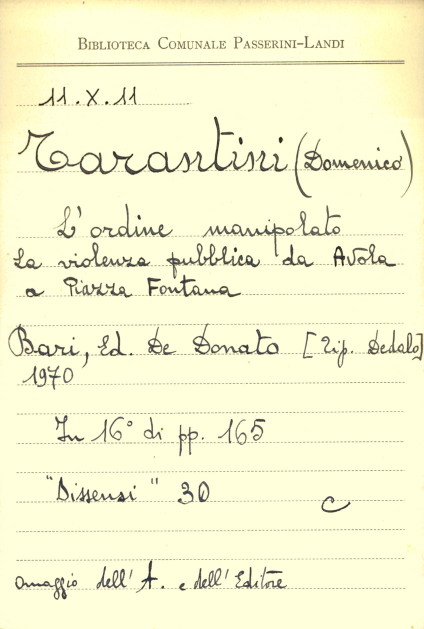 BIBLIOTECA COMUNALE PASSERINI-LANDI
11.X.11
Tarantini (Domenico)
L'ordine manipolato
La violenza pubblica da Avola
a Piazza Fontana
Bari, Ed. De Donato [Tip. Dedalo]
1970
In 16° di pp. 165
"Dissensi" 30
C
omaggio dell'A. e dell'Editore